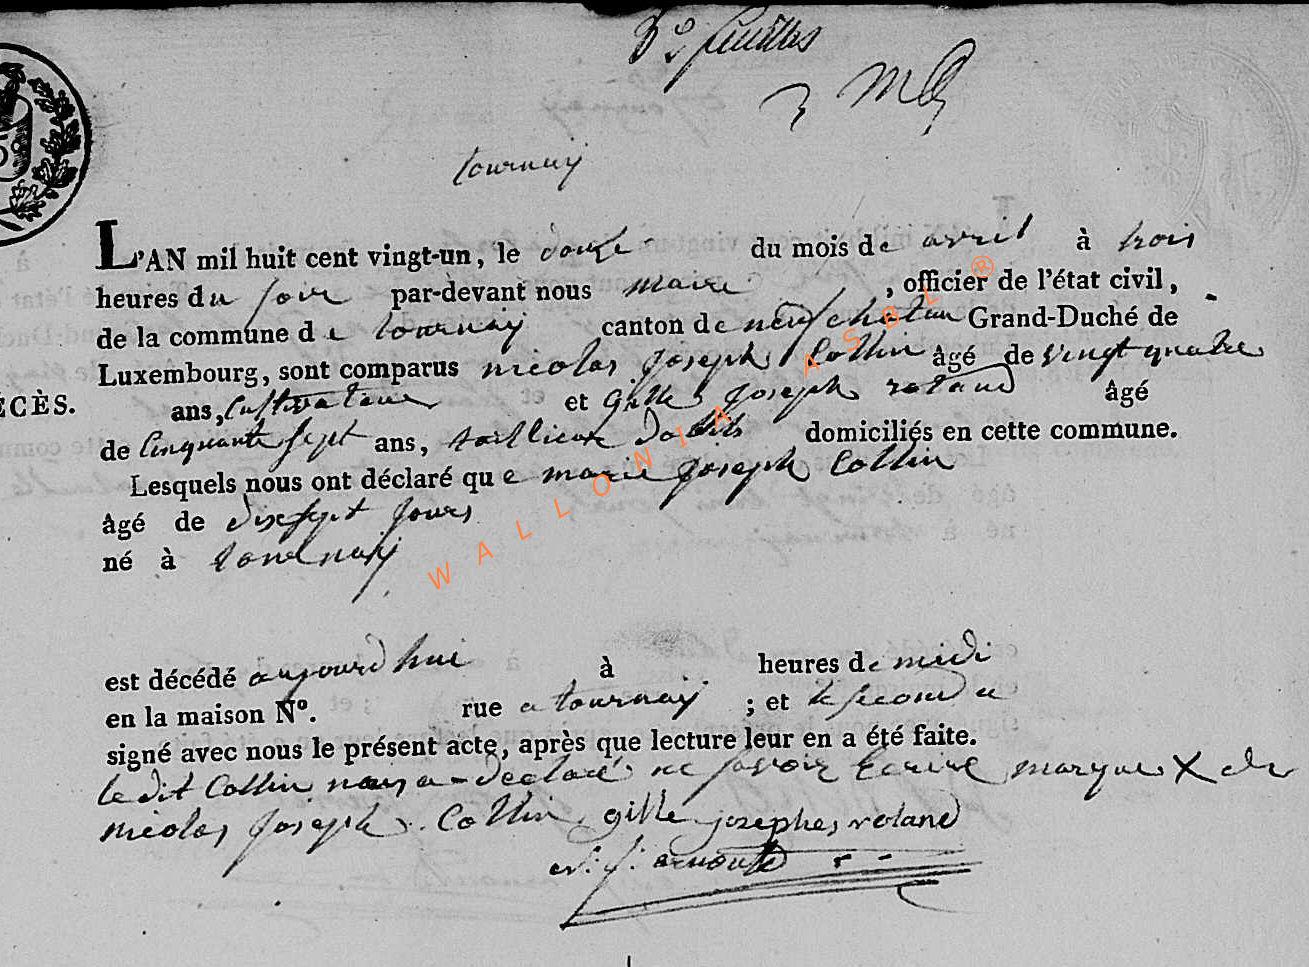 3e feuilles
tournay
L'AN mil huit cent vingt-un, le douze du mois de avril à trois
heures du soir par-devant nous maire , officier de l'état civil,
de la commune de tournay canton de neufchateau Grand-Duché de
Luxembourg, sont comparus nicolas joseph Collin âgé de vingt quatre
ÉCÈS.
ans, Cultivateur et gille joseph roland âgé
de Cinquante sept ans, taillieur dabits domiciliés en cette commune.
Lesquels nous ont déclaré que marie joseph Collin
âgé de dixsept jours
né à tournay
est décédé aujourdhui à heures de midi
en la maison N°. rue a tournay ; et le second a
signé avec nous le présent acte, après que lecture leur en a été faite.
le dit Collin nous a declaré ne savoir Ecrire marque X de
nicolas joseph Collin gille josephes roland
j. arnould
WALLONIA ASBL ®